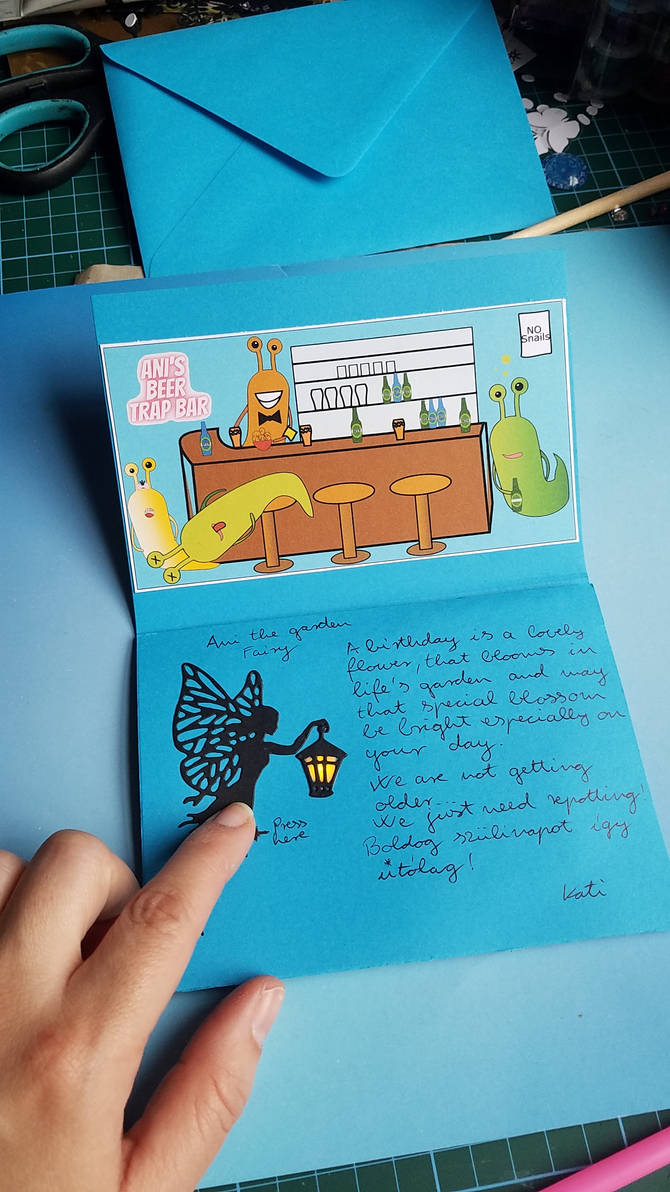 ANI'S
BEER
TRAP BAR
NO
Snails
Ani the garden
Fairy
Press
here
A birthday is a lovely
flower, that blooms in
life's garden and may
that special blossom
be bright especially on
your day.
We are not getting
older...
We just need repotting!
Boldog szülinapot így
útólag!
Kati